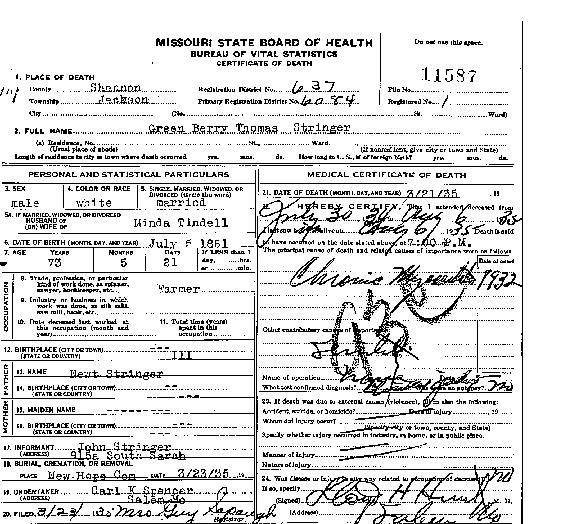 MISSOURI STATE BOARD OF HEALTH
BUREAU OF VITAL STATISTICS
CERTIFICATE OF DEATH
Do not use this space.
11587
1. PLACE OF DEATH
County Shannon Registration District No. 637 File No.
Township Jackson Primary Registration District No. 6084 Registered No. 1
City (No. St. Ward)
2. FULL NAME Green Berry Thomas Stringer
(a) Residence, No. St., Ward.
(Usual place of abode) (If nonresident, give city or town and State)
Length of residence in city or town where death occurred yrs. mos. ds. How long in U. S., if of foreign birth? yrs. mos. ds.
PERSONAL AND STATISTICAL PARTICULARS
3. SEX 4. COLOR OR RACE 5. SINGLE, MARRIED, WIDOWED, OR DIVORCED (write the word)
male white married
5A. IF MARRIED, WIDOWED, OR DIVORCED
HUSBAND OF
(OR) WIFE OF Minda Tindell
6. DATE OF BIRTH (MONTH, DAY, AND YEAR) July 5 1861
7. AGE YEARS MONTHS DAYS If LESS than 1 day, hrs.
73 5 21 or min.
OCCUPATION
8. Trade, profession, or particular kind of work done, as spinner, sawyer, bookkeeper, etc. Farmer
9. Industry or business in which work was done, as silk mill, saw mill, bank, etc.
10. Date deceased last worked at this occupation (month and year)
11. Total time (years) spent in this occupation
12. BIRTHPLACE (CITY OR TOWN) ---
(STATE OR COUNTRY) Ill
FATHER
13. NAME Newt Stringer
14. BIRTHPLACE (CITY OR TOWN) ---
(STATE OR COUNTRY) --
MOTHER
15. MAIDEN NAME ---
16. BIRTHPLACE (CITY OR TOWN) ---
(STATE OR COUNTRY)
17. INFORMANT John Stringer
(ADDRESS) 915a South Sarah
18. BURIAL, CREMATION, OR REMOVAL
PLACE New Hope Cem DATE 3/23/35
19. UNDERTAKER Carl K Spencer
(ADDRESS) Salem Mo
20. FILED 3/23 35 Mrs Guy
Registrar
MEDICAL CERTIFICATE OF DEATH
21. DATE OF DEATH (MONTH, DAY, AND YEAR) 3/21/35 , 19
22. I HEREBY CERTIFY, That I attended deceased from
July 30 34 Aug 6 35
6/ 1935 Death is said
to have occurred on the date stated above, at 7:00 P.M.
The principal cause of death and related causes of importance were as follows:
Date of onset
Chronic 1932
Other contributory causes of importance:
Name of operation
What test confirmed diagnosis? Was there an autopsy? no
23. If death was due to external causes (violence), fill in also the following:
Accident, suicide, or homicide? Date of injury 19
Where did injury occur?
(Specify city or town, county, and State)
Specify whether injury occurred in industry, in home, or in public place.
Manner of injury
Nature of injury
24. Was disease or injury in any way related to occupation of deceased? no
If so, specify
(Signed) H Hunt
(Address) Salem Mo